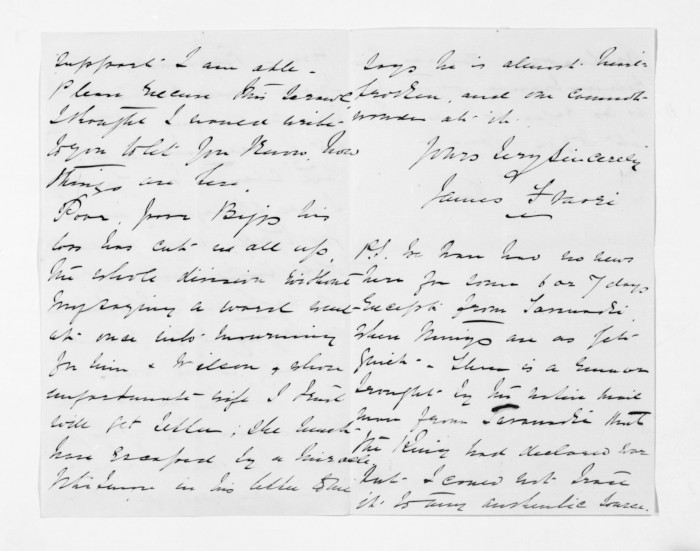 support I am able -
Please excuse this scrawl
I thought I would write
to you to let you know how
things are here.
Poor, poor Biggs his
loss has cut us all up,
the whole division without
my saying a word went
at once into mourning
for him & Wilson & whose
unfortunate wife I trust
will get better; she must
have escaped by a miracle
Whitmore in his letter to me
says he is almost heart
broken, and one cannot
wonder at it.
Yours Very Sincerely
James
P.S. We have had no news
here for some 6 or 7 days
except from Taranaki
when things are as yet
quiet - there is a rumour
brought by the native mail
man from Taranaki that
the King had declared war
but I could not trace
it to any authentic source.